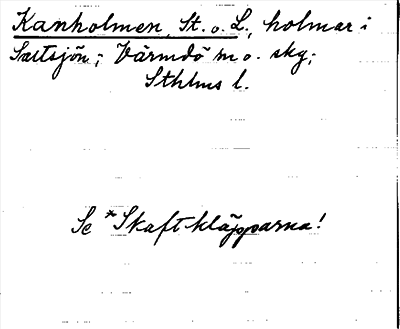 Kanholmen, St. o. L., holmar i
Saltsjön; Värmdö sn o. skg;
Sthlms l.
Se *Skaftkläpparna!